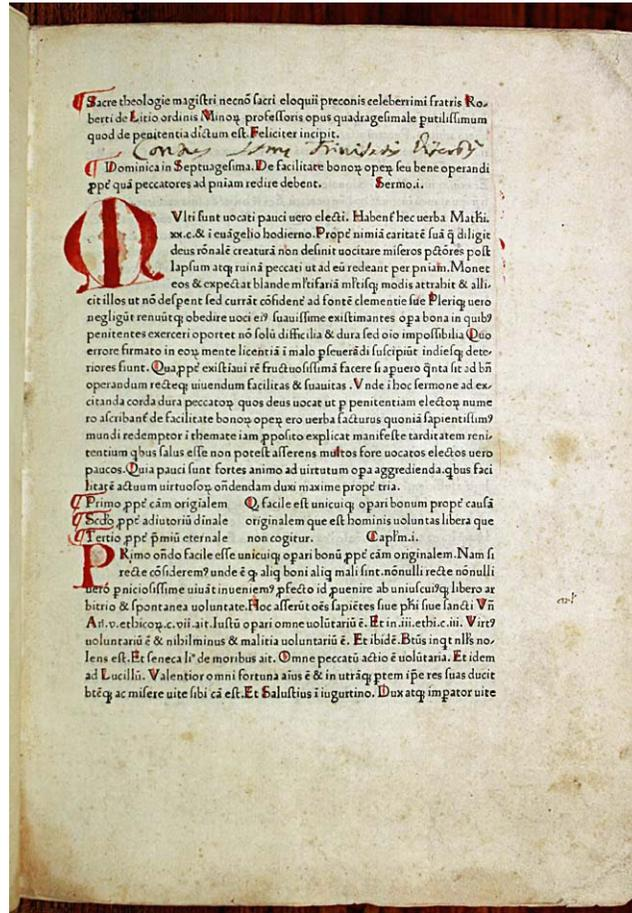 Sacre theologie magistri necnō sacri eloquii preconis celeberrimi fratris Ro-
berti de Litio ordinis Minoꝝ professoris opus quadragesimale putilissimum
quod de penitentia dictum est. Feliciter incipit.
Dominica in Septuagesima. De facilitate bonoꝝ opeꝝ seu bene operandi
ꝓpt̄ quā peccatores ad pniam redire debent. Sermo.i.
MVlti sunt uocati pauci uero electi. Habent̄ hec uerba Mathi.
xx.c.& i euāgelio hodierno. Propt̄ nimiā caritatē suā q̄ diligit
deus rōnalē creaturā non desinit uocitare miseros pctōres post
lapsum atqꝫ ruinā peccati ut ad eū redeant per pniam. Monet
eos & expectat blande ml̄tifariā ml̄tisqꝫ modis attrahit & alli-
cit illos ut nō despent sed currāt cōfident̄ ad fontē clementie sue Pleriqꝫ uero
negligūt renuūtqꝫ obedire uoci eiꝰ suauissime existimantes opa bona in quibꝰ
penitentes exerceri oportet nō solū difficilia & dura sed oio impossibilia Quo
errore firmato in eoꝝ mente licentiā i malo pseuerādi suscipiūt indiesqꝫ dete-
riores fiunt. Qua,ppt̄ existiaui rē fructuosissimā facere si apuero q̄nta sit ad bn̄
operandum recteqꝫ uiuendum facilitas & suauitas. Vnde i hoc sermone ad ex-
citanda corda dura peccatoꝝ quos deus uocat ut p penitentiam electoꝝ nume
ro ascribant̄ de facilitate bonoꝝ opeꝝ ero uerba facturus quoniā sapientissimꝰ
mundi redemptor i themate iam ꝓposito explicat manifeste tarditatem reni-
tentium qbus salus esse non potest asserens multos fore uocatos electos uero
paucos. Quia pauci sunt fortes animo ad uirtutum opa aggredienda. qbus faci
litatē actuum uirtuosoꝝ oñdendam duxi maxime propt̄ tria.
Primo ꝓpt̄ cām origialem
Scdo ꝓpt̄ adiutoriū diuale
Tertio ꝓpt̄ p̄miū eternale
Q, facile est unicuiqꝫ opari bonum propt̄ causā
originalem que est hominis uoluntas libera que
non cogitur. Caplm.i.
PRimo oñdo facile esse unicuiqꝫ opari bonū ꝓpt̄ cām originalem. Nam si
recte cōsideremꝰ unde ē qꝫ aliq boni aliq mali sint. nōnulli recte nōnulli
uero pniciosissime uiuāt inueniemꝰ ꝓfecto id puenire ab uniuscuiꝰqꝫ libero ar
bitrio & spontanea uoluntate. Hoc asserūt oēs sapiētes siue phi siue sancti Vñ
Arl.v.ethicoꝝ.c.vii.ait. Iustū opari omne uolūtariū ē. Et in.iii.ethi.c.iii. Virtꝰ
uoluntariū ē & nihilminus & malitia uoluntariū ē. Et ibidē. Btūs inqt nll̄s no-
lens est. Et seneca li° de moribus ait. Omne peccatū actio ē uolūtaria. Et idem
ad Lucillū. Valentior omni fortuna aiūs ē & in utrāqꝫ ptem ip̄e res suas ducit
btēqꝫ ac misere uite sibi cā est. Et Salustius i iugurtino. Dux atqꝫ impator uite